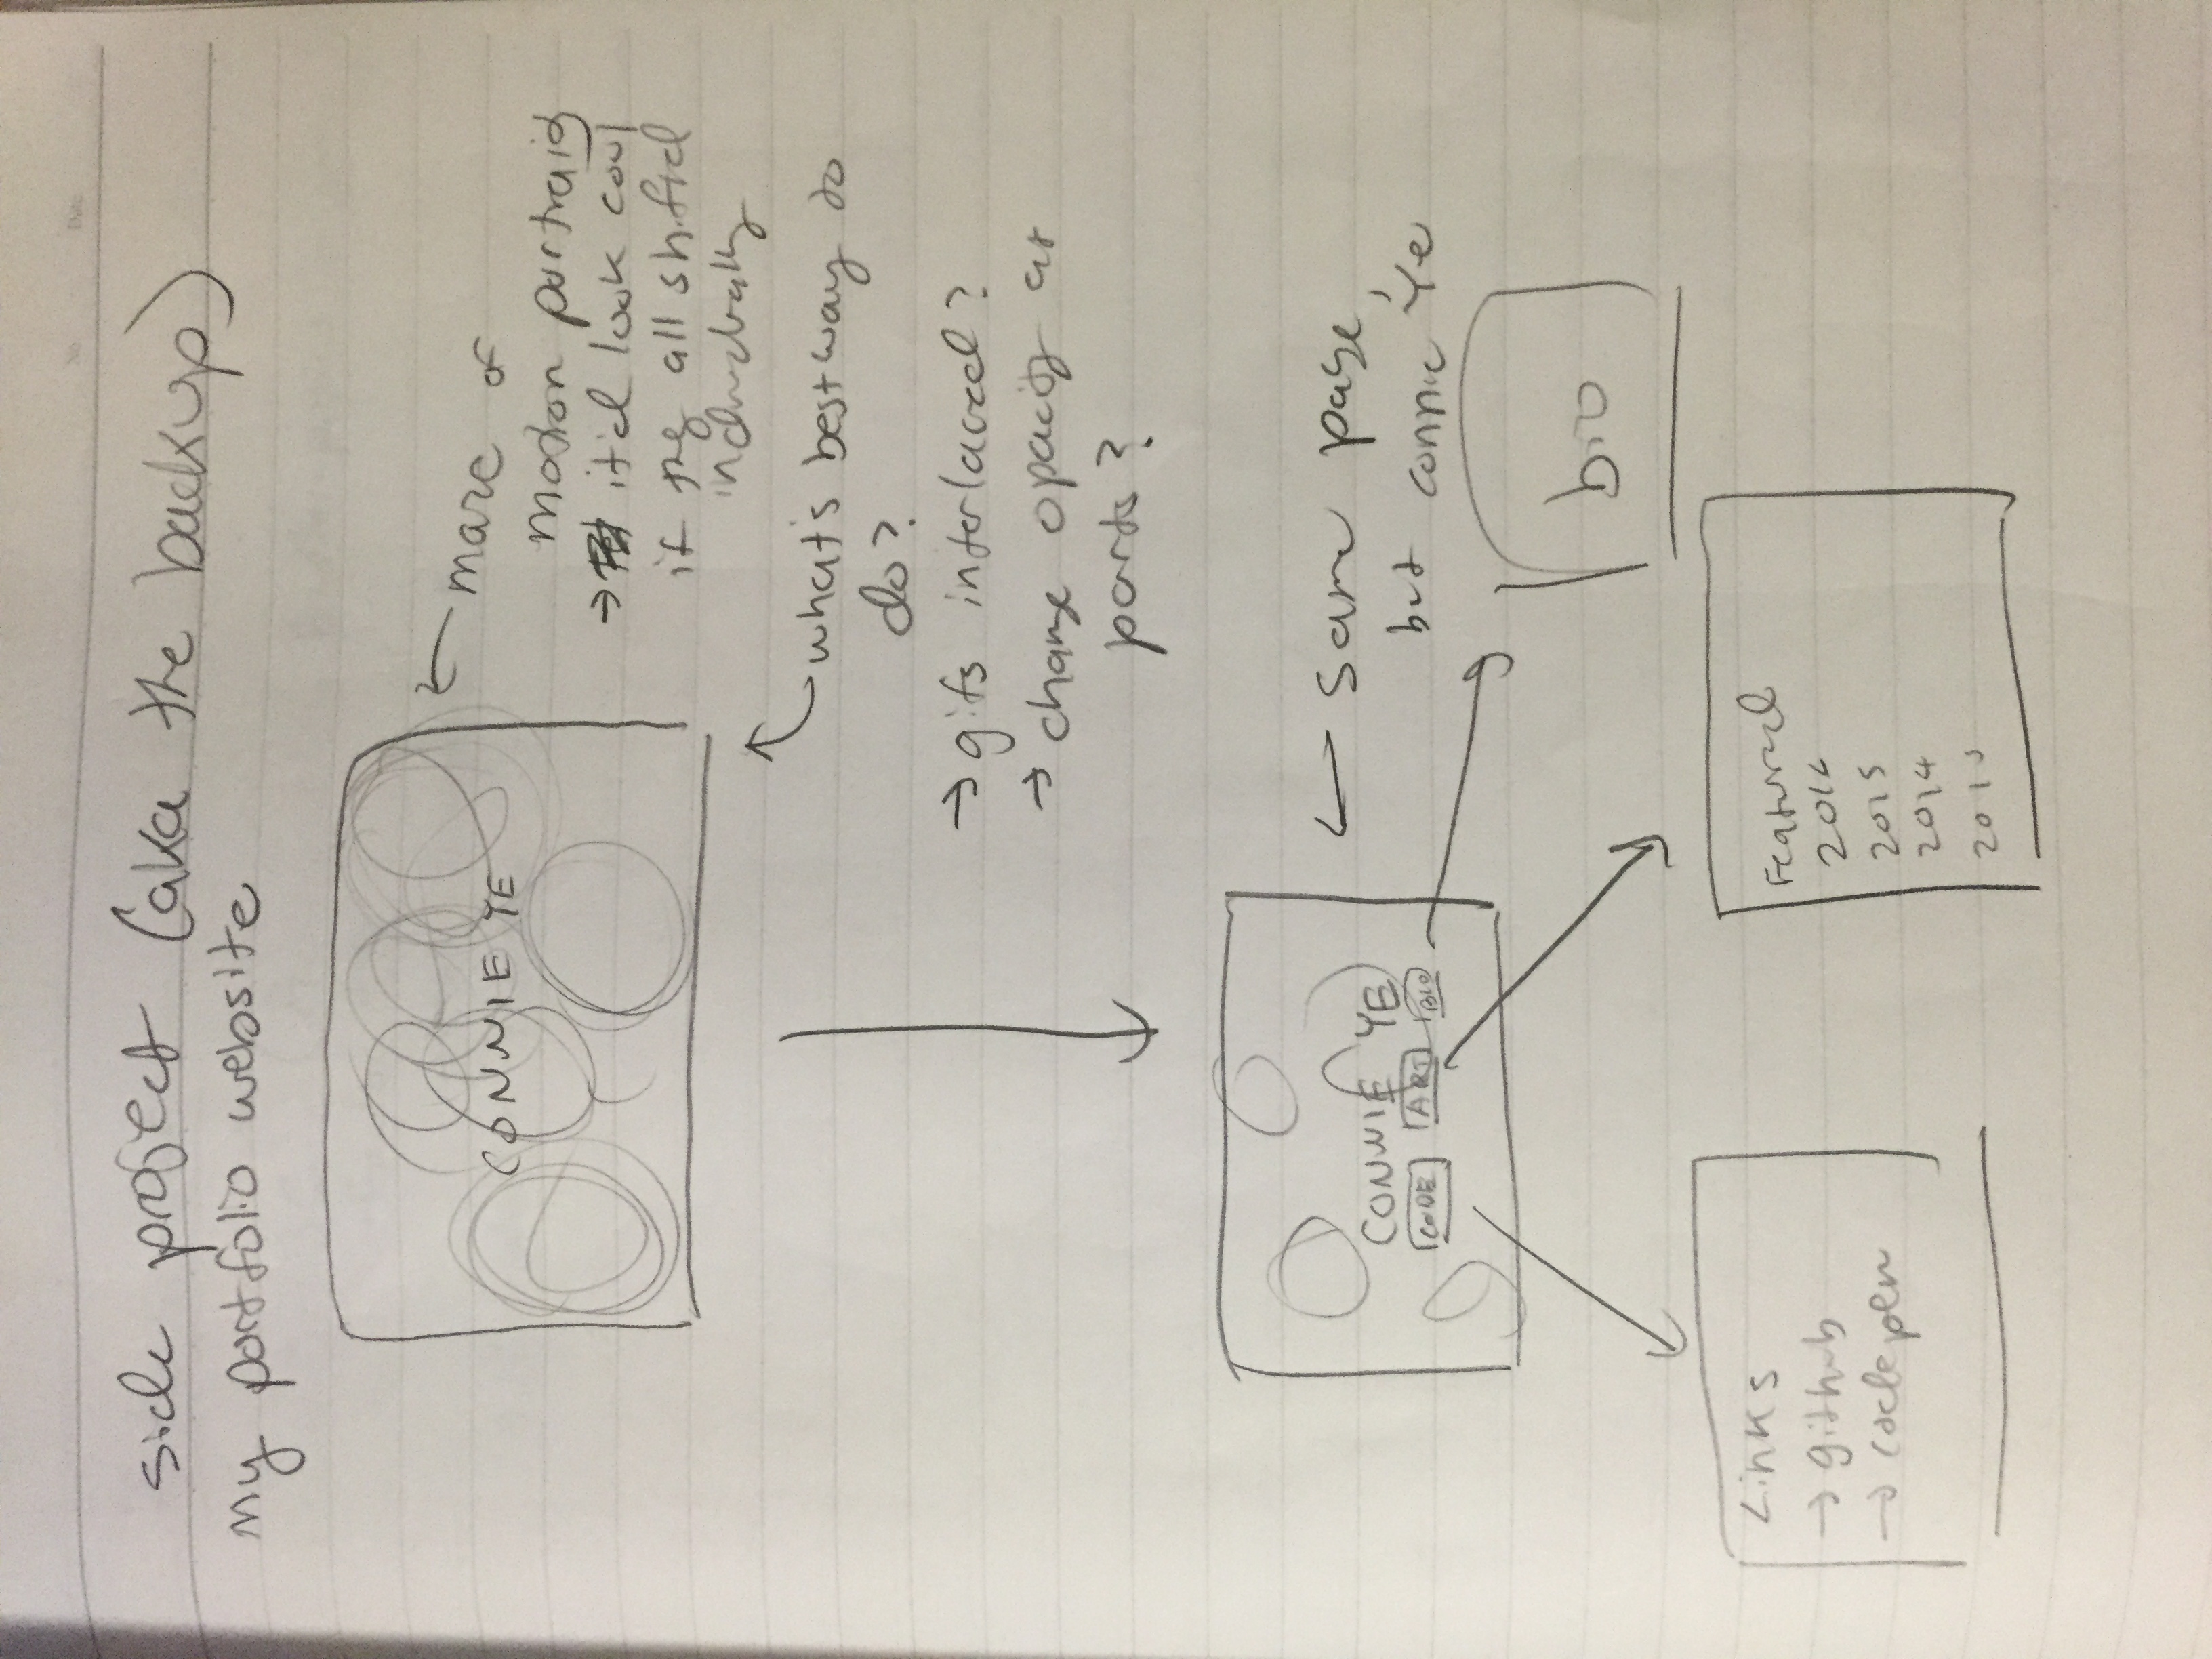 No Date
side project (aka the backup)
my portfolio website
CONNIE YE
maze of
motion portraits
→ it'd look cool
if they all shifted
individually
what's best way to
do?
→ gifs interlaced?
→ change opacity at
parts?
CONNIE YE
CODE ART BIO
same page,
but connie Ye
bio
Links
→ github
→ codepen
Featured
2016
2015
2014
2013